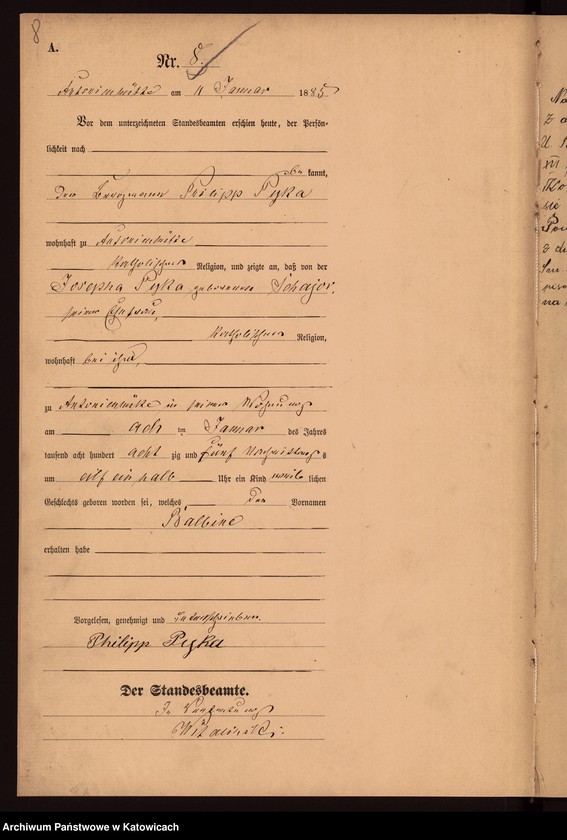 8
A.
Nr. 8.
Antonienhütte am 11 Januar 1885
Vor dem unterzeichneten Standesbeamten erschien heute, der Persön-
lichkeit nach
be kannt,
der Bergmann Philipp Pyka
wohnhaft zu Antonienhütte
katholischer Religion, und zeigte an, daß von der
Josepha Pyka geborenen Schajor,
seiner Ehefrau,
katholischer Religion,
wohnhaft bei ihm,
zu Antonienhütte in seiner Wohnung
am acht ten Januar des Jahres
tausend acht hundert acht zig und fünf Vormittags
um elf ein halb Uhr ein Kind weib lichen
Geschlechts geboren worden sei, welches den Vornamen
Balbine
erhalten habe
Vorgelesen, genehmigt und unterschrieben.
Philipp Pyka
Der Standesbeamte.
In Vertretung
Archiwum Państwowe w Katowicach